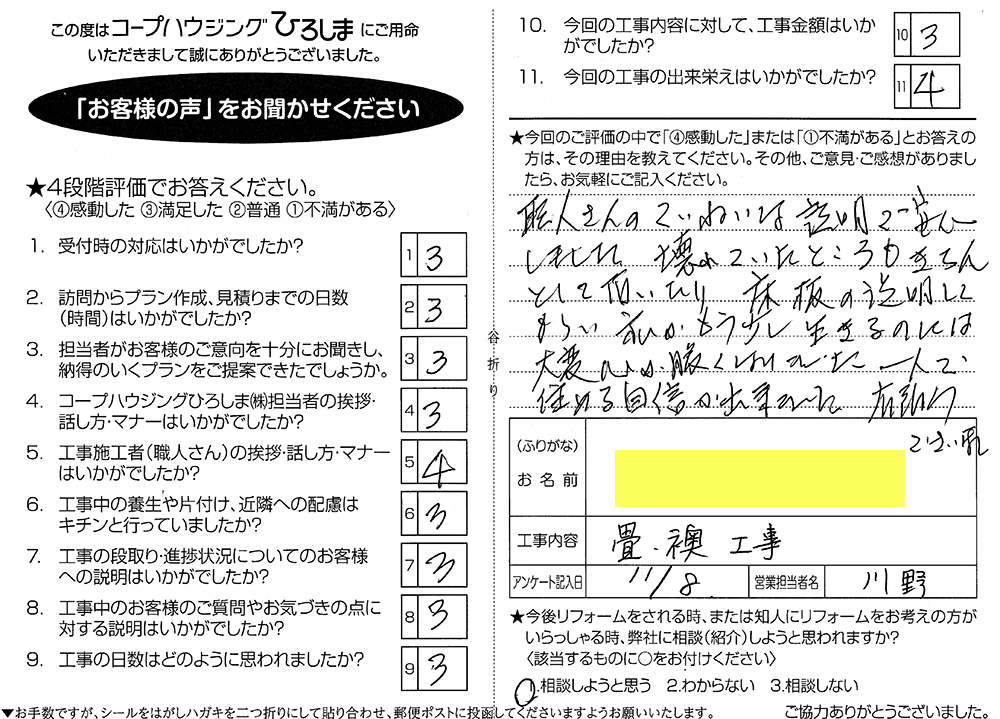 この度はコープハウジングひろしまにご用命
いただきまして誠にありがとうございました。
「お客様の声」をお聞かせください
★4段階評価でお答えください。
〈④感動した ③満足した ②普通 ①不満がある〉
1. 受付時の対応はいかがでしたか?
1 3
2. 訪問からプラン作成、見積りまでの日数
(時間)はいかがでしたか?
2 3
3. 担当者がお客様のご意向を十分にお聞きし、
納得のいくプランをご提案できたでしょうか。
3 3
4. コープハウジングひろしま㈱担当者の挨拶・
話し方・マナーはいかがでしたか?
4 3
5. 工事施工者(職人さん)の挨拶・話し方・マナー
はいかがでしたか?
5 4
6. 工事中の養生や片付け、近隣への配慮は
キチンと行っていましたか?
6 3
7. 工事の段取り・進捗状況についてのお客様
への説明はいかがでしたか?
7 3
8. 工事中のお客様のご質問やお気づきの点に
対する説明はいかがでしたか?
8 3
9. 工事の日数はどのように思われましたか?
9 3
▼お手数ですが、シールをはがしハガキを二つ折りにして貼り合わせ、郵便ポストに投函してくださいますようお願いいたします。
谷折り
10. 今回の工事内容に対して、工事金額はいか
がでしたか?
10 3
11. 今回の工事の出来栄えはいかがでしたか?
11 4
★今回のご評価の中で「④感動した」または「①不満がある」とお答えの
方は、その理由を教えてください。その他、ご意見・ご感想がありまし
たら、お気軽にご記入ください。
職人さんのていねいな説明で安心
しました 壊れていたところもきちん
として頂いたり 床板の説明して
もらい 私がもう少し生きるのには
大変 一人で
住める自信が出来ました 有難う
ございます
(ふりがな)
お名前
工事内容 畳・襖 工事
アンケート記入日 11/8 営業担当者名 川野
★今後リフォームをされる時、または知人にリフォームをお考えの方が
いらっしゃる時、弊社に相談(紹介)しようと思われますか?
〈該当するものに○をお付けください〉
1.相談しようと思う 2.わからない 3.相談しない
ご協力ありがとうございました。